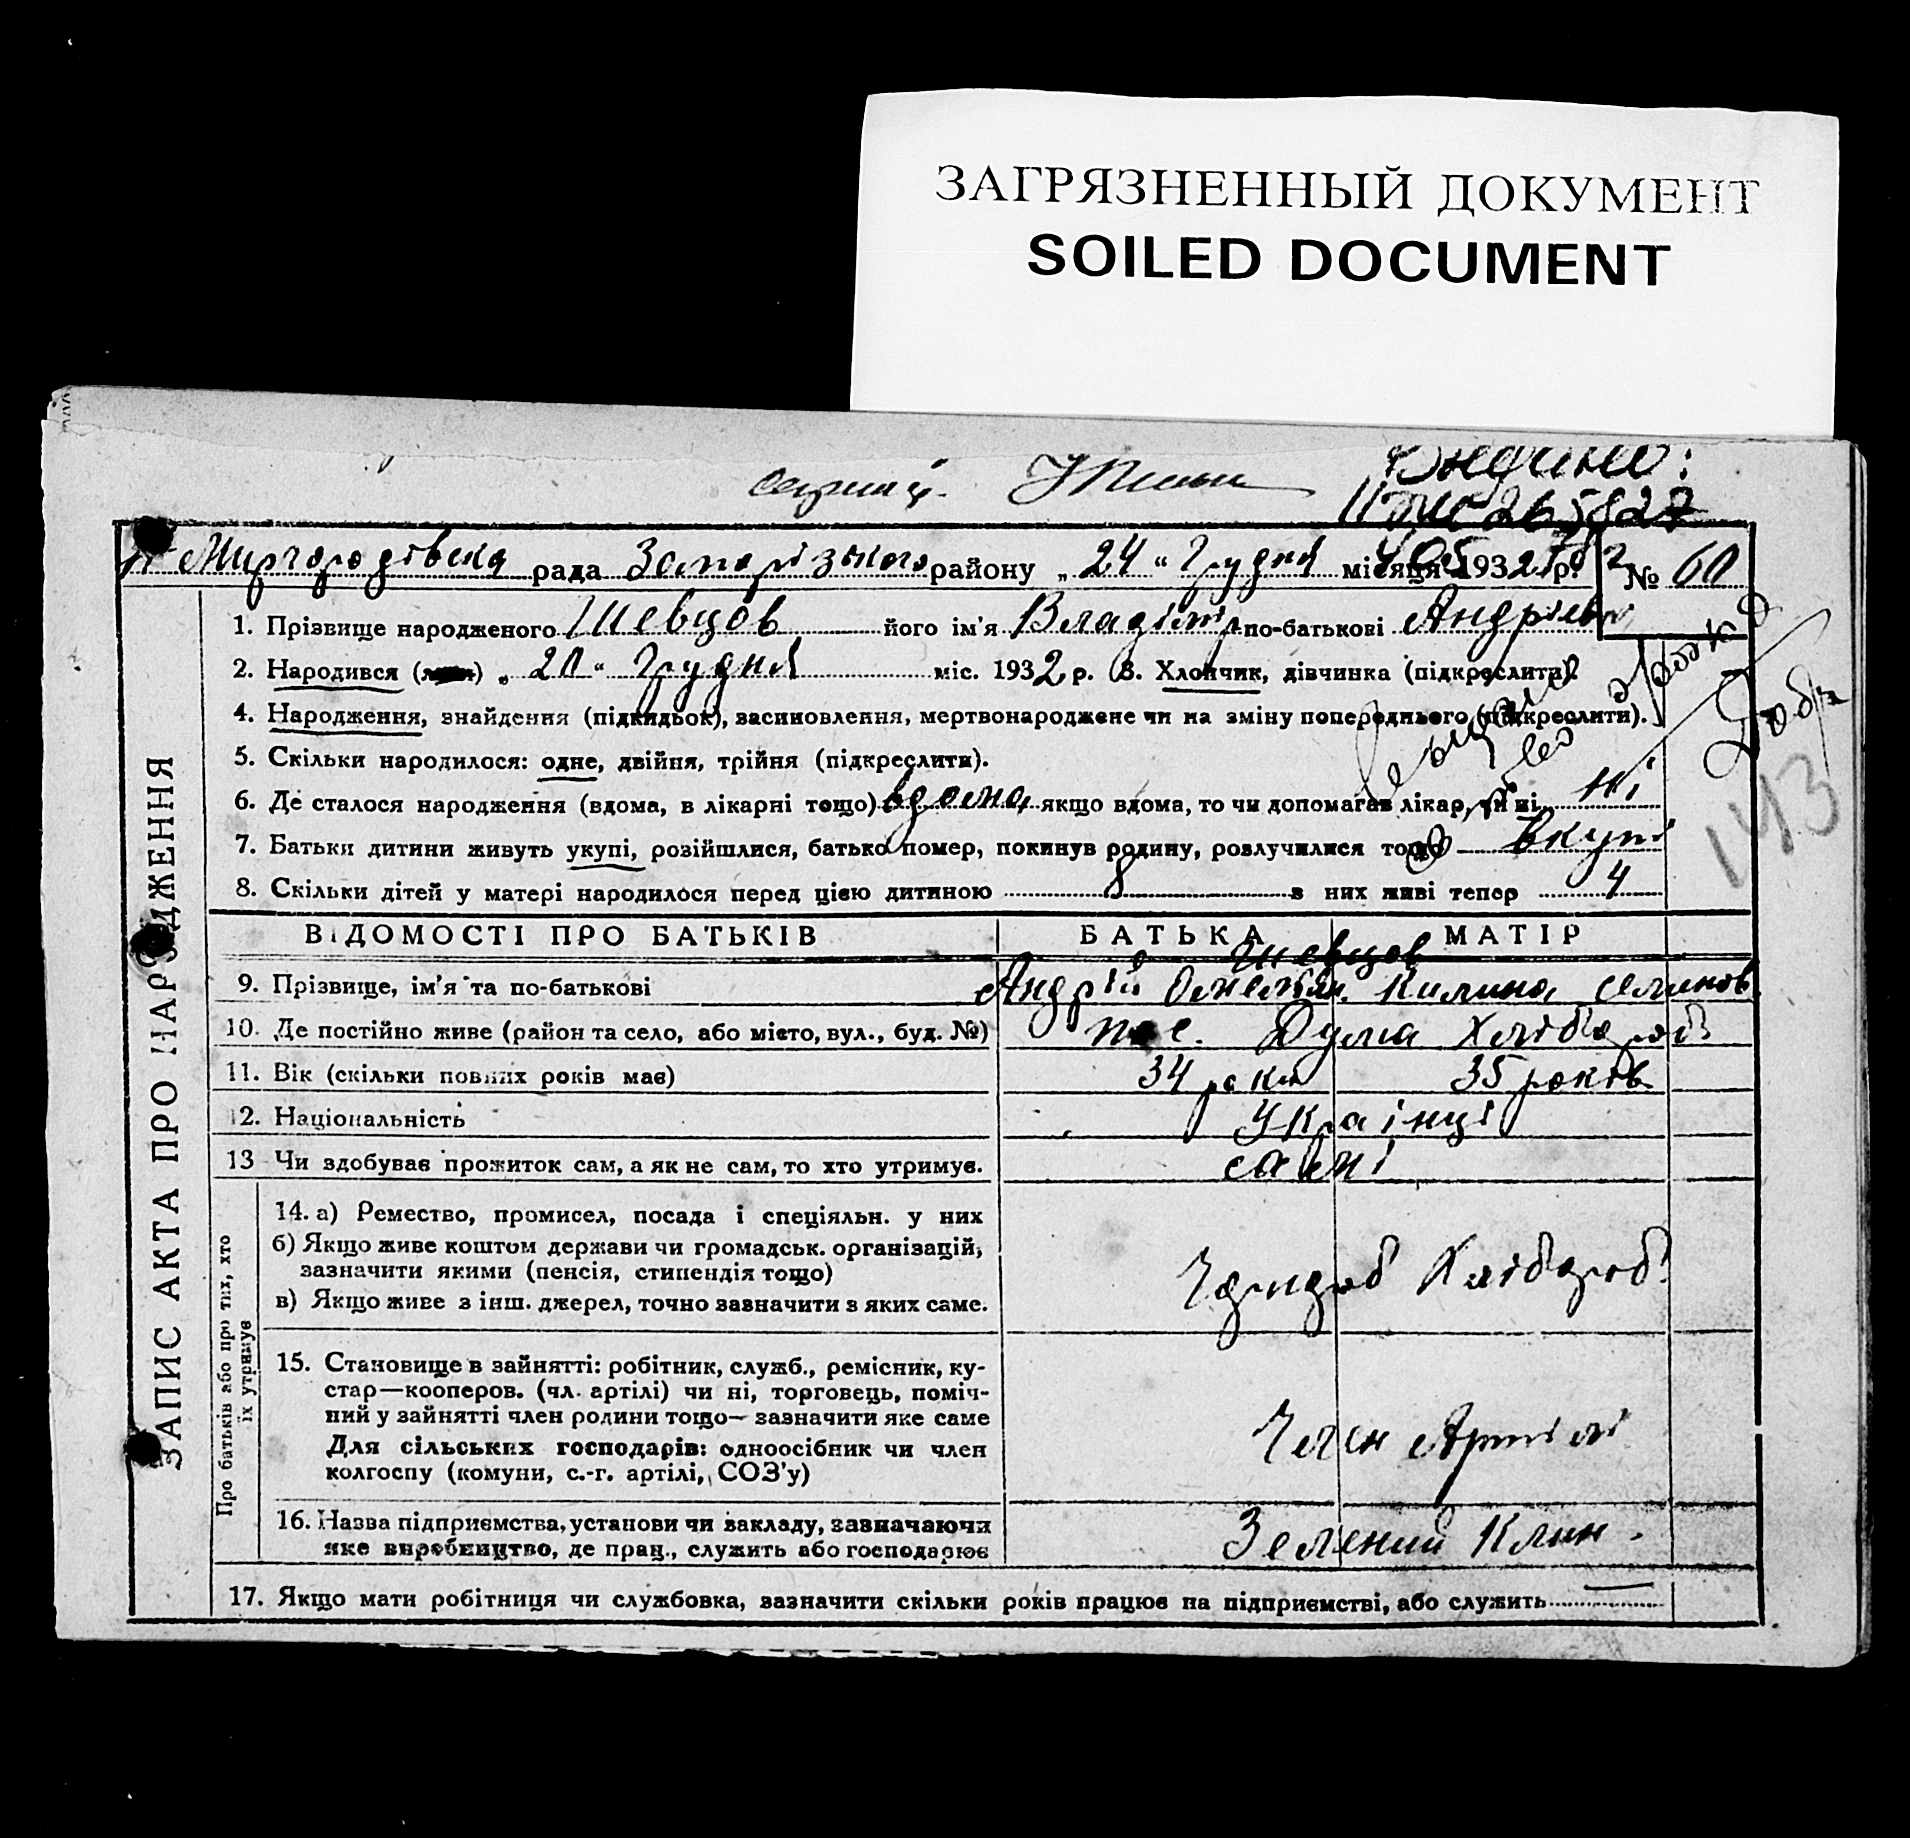 ЗАГРЯЗНЕННЫЙ ДОКУМЕНТ
SOILED DOCUMENT
265827
Миргородівська рада Запорізького району „ 24 “ Грудня місяця 1932 р. № 60
1. Прізвище народженого Шевцов його ім'я Владімір по-батькові Андрієв
2. Народився „ 20 “ Грудня міс. 1932 р. 3. Хлопчик, дівчинка (підкреслити).
4. Народження, знайдення (підкидьок), засиновлення, мертвонароджене чи на зміну попереднього (підкреслити).
5. Скільки народилося: одне, двійня, трійня (підкреслити).
6. Де сталося народження (вдома, в лікарні тощо) вдома, якщо вдома, то чи допомагав лікар, чи ні ні
7. Батьки дитини живуть укупі, розійшлися, батько помер, покинув родину, розлучилися тощо Вкупі
8. Скільки дітей у матері народилося перед цією дитиною 8 з них живі тепер 4
143
ЗАПИС АКТА ПРО НАРОДЖЕННЯ
ВІДОМОСТІ ПРО БАТЬКІВ БАТЬКА МАТІР
Шевцов
9. Прізвище, ім'я та по-батькові Андрій Килина
10. Де постійно живе (район та село, або місто, вул., буд. №) пос. Дума Хліборобів
11. Вік (скільки повних років має) 34 роки 35 років
12. Національність Українці
13 Чи здобуває прожиток сам, а як не сам, то хто утримує. самі
Про батьків або про тих, хто
їх утримує
14. а) Ремество, промисел, посада і спеціяльн. у них
б) Якщо живе коштом держави чи громадськ. організацій,
зазначити якими (пенсія, стипендія тощо)
в) Якщо живе з інш. джерел, точно зазначити з яких саме.
Хлібороб
15. Становище в зайнятті: робітник, служб., ремісник, ку-
стар—кооперов. (чл. артілі) чи ні, торговець, поміч-
ний у зайнятті член родини тощо— зазначити яке саме
Для сільських господарів: одноосібник чи член
колгоспу (комуни, с.-г. артілі, СОЗ'у)
Член Артілі
16. Назва підприємства, установи чи закладу, зазначаючи
яке виробництво, де прац., служить або господарює
Зелений Клин.
17. Якщо мати робітниця чи службовка, зазначити скільки років працює на підприємстві, або служить —